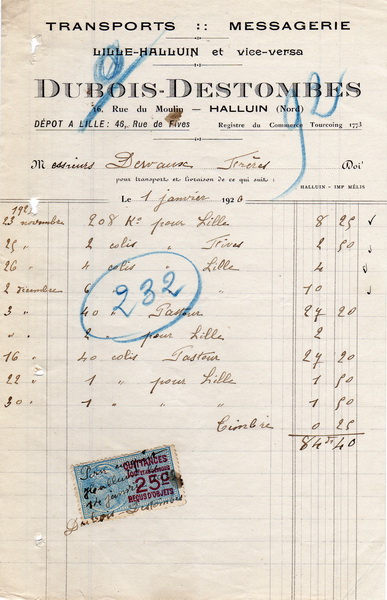 TRANSPORTS :: MESSAGERIE
LILLE-HALLUIN et vice-versa
DUBOIS-DESTOMBES
16, Rue du Moulin — HALLUIN (Nord)
DÉPOT A LILLE : 46, Rue de Fives Registre du Commerce Tourcoing 1773
92
Messieurs Dervaux Frères Doi
pour transport et livraison de ce qui suit :
HALLUIN - IMP MÉLIS
Le 1 janvier 192
23 novembre 208 Ko pour Lille 8 25
25 " 2 colis " Fives 2 50
26 " 4 colis " Lille 4
2 décembre 6 " " 10
232
3 " 40 " Pasteur 27 20
" " 2 " pour Lille 2
16 " 40 colis Pasteur 27 20
22 " 1 " pour Lille 1 50
30 " 1 " " " 1 50
Timbre 0 25
84 40
QUITTANCES
25c
REÇUS D'OBJETS
Pour acquit
Halluin
1er janvier
Dubois-Destombes